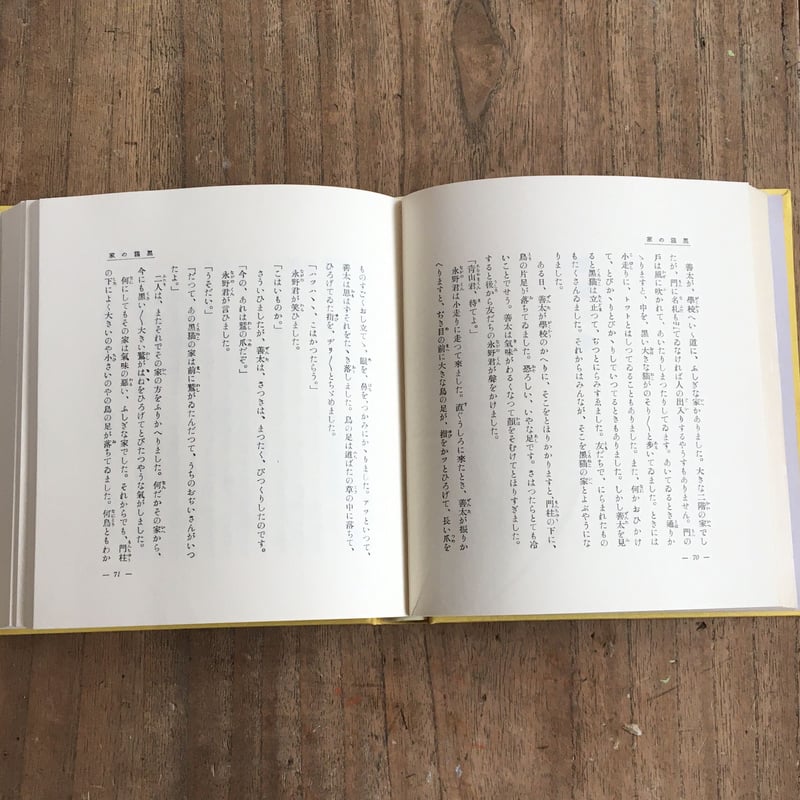 黒猫の家
善太が、學校へいく道に、ふしぎな家がありました。大きな二階の家でし
たが、門に名札もついてゐなければ人の出入りするやうすもありません。門の
戸は風に吹かれて、あいたりしまつたりしてゐます。あいてゐるとき通りか
ゝりますと、中を、黒い大きな猫がのそり〳〵と歩いてゐました。ときには
小走りに、トットとはしつてることもありました。また、何かおひかけ
て、とびかゝりとびかゝりしていつてるときもありました。しかし善太を見
ると黒猫は立止つて、ぢつとにらみすゑました。友だちで、にらまれたもの
もたくさんゐました。それからはみんなが、そこを黒猫の家とよぶやうにな
りました。
ある日、善太が學校のかへりに、そこをとほりかかりますと、門柱の下に、
鳥の片足が落ちてゐました。恐ろしい、いやな足です。さはつたらとても冷
いことでせう。善太は氣味がわるくなつて顔をそむけてとほりすぎました。
すると後から友だちの永野君が聲をかけました。
「青山君、待てよ。」
永野君は小走りに走つて來ました。直ぐうしろに來たとき、善太が振りか
へりますと、もう目の前に大きな鳥の足が、指をカッとひろげて、長い爪を
— 70 —
黒猫の家
ものすごくおし立てゝ、眼を、鼻を、つかみにかゝりました。アッといつて、
善太は思はずそれをたゝき落しました。鳥の足は道ばたの草の中に落ちて、
ひろげてゐた指を、ヂリ〳〵とちゞめました。
「ハツハヽヽ、こはかつたらう。」
永野君が笑ひました。
「こはいものか。」
さういひましたが、善太は、さつきは、まつたく、びつくりしたのです。
「今の、あれは鷲の爪だぞ。」
永野君が言ひました。
「うそだい。」
「だつて、あの黒猫の家は前に鷲がゐたんだつて、うちのおぢいさんがいつ
たよ。」
二人は、またそれでその家の方をふりかへりました。何だかその家から、
今にも黒い〳〵大きい鷲がはねをひろげてとびたつやうな氣がしました。
何にしてもその家は氣味の悪い、ふしぎな家でした。それからでも、門柱
の下によく大きいのや小さいのやの鳥の足が落ちてゐました。何鳥ともわか
— 71 —